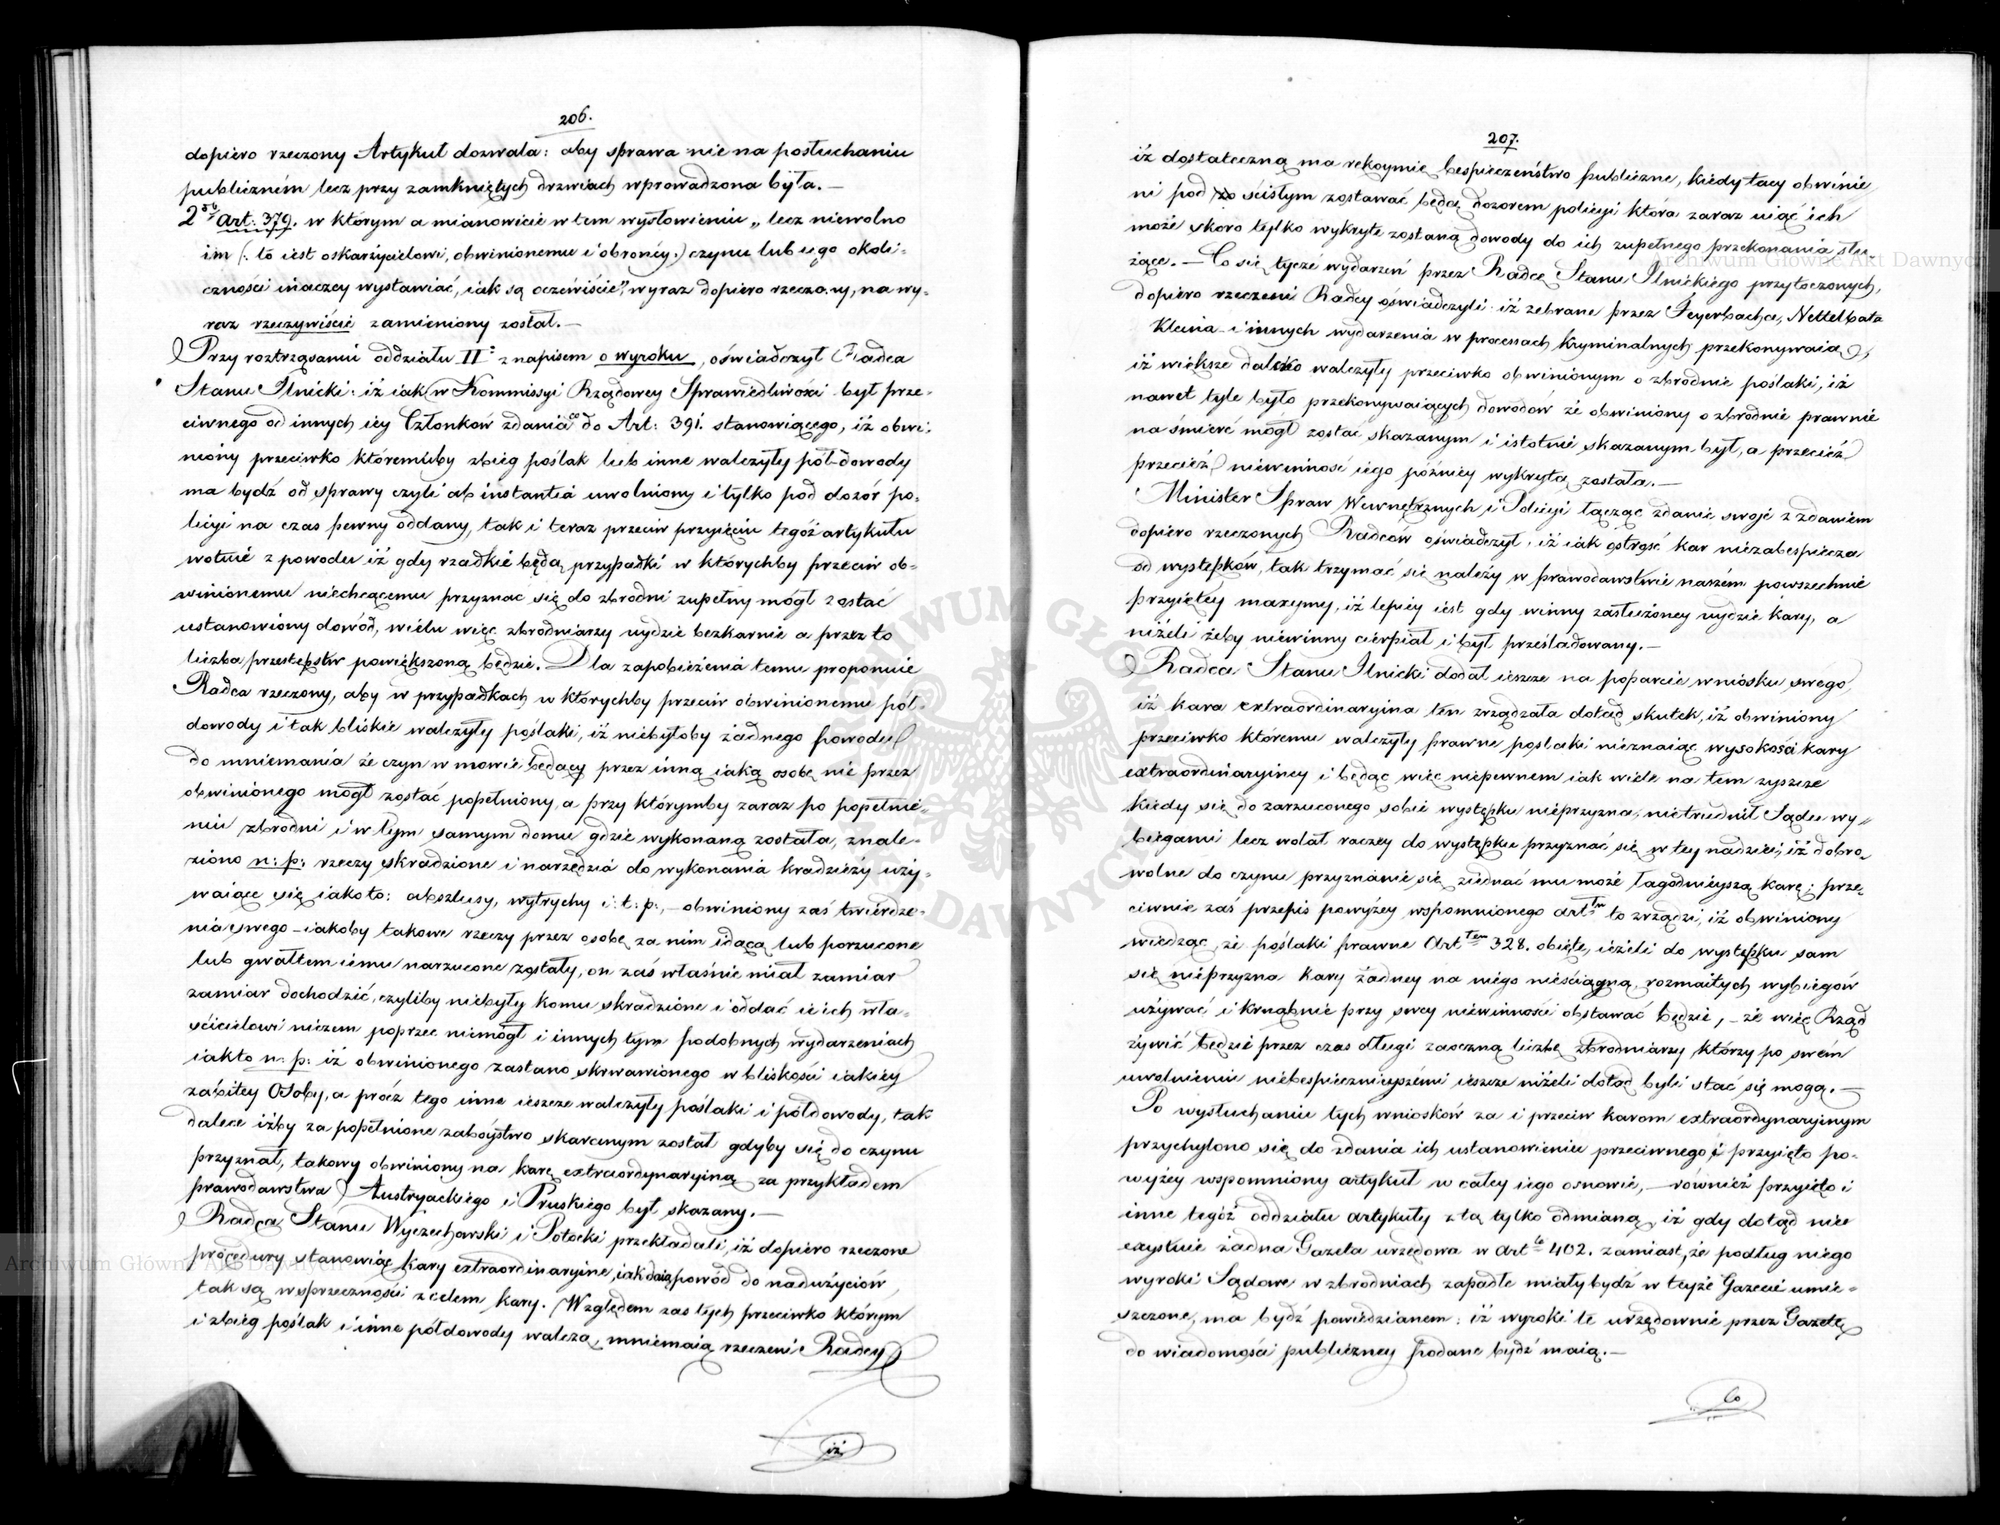 206.
dopiero rzeczony Artykuł dozwala: aby sprawa nie na posłuchaniu
publiczném lecz przy zamkniętych drzwiach wprowadzona była. —
2re Art: 379. w którym a mianowicie w tem wysłowieniu „lecz niewolno
im (: to iest oskarżycielowi, obwinionemu i obrońcy :) czynu lub iego okoli-
czności inaczey wystawiać, iak są oczéwiście", wyraz dopiero rzeczony, na wy-
raz rzeczywiście zamieniony został. —
Przy roztrząsaniu oddziału II° z napisem o wyroku, oświadczył Radca
Stanu Ilnicki: iż iak w Kommissyi Rządowey Sprawiedliwości był prze-
ciwnego od innych iey Członków zdania co do Art: 391. stanowiącego, iż obwi-
niony przeciwko któremuby zbieg poślak lub inne walczyły pół-dowody
ma bydź od sprawy czyli ab instantia uwolniony i tylko pod dozór po-
licyi na czas pewny oddany, tak i teraz przeciw przyięciu tegóż artykułu
wotuie z powodu iż gdy rzadkie będą przypadki w którychby przeciw ob-
winionemu niechcącemu przyznac się do zbrodni zupełny mógł zostać
ustanowiony dowód, wielu więc zbrodniarzy uydzie bezkarnie a przez to
liczba przestępstw powiększoną będzie. Dla zapobieżenia temu proponuie
Radca rzeczony, aby w przypadkach w którychby przeciw obwinionemu pół-
dowody i tak bliskie walczyły poślaki, iż niebyłoby żadnego powodu
do mniemania że czyn w mowie będący przez inną iaką osobę nie przez
obwinionego mógł zostać popełniony, a przy którymby zaraz po popełnie-
niu zbrodni i w tym samym domu gdzie wykonaną została, znale-
ziono n: p: rzeczy skradzione i narzędzia do wykonania kradzieży uży-
waiące się iako to: abszlusy, wytrychy i: t: p:, — obwiniony zaś twierdze-
nia swego — iakoby takowe rzeczy przez osobę za nim idącą lub porzucone
lub gwałtem iemu narzucone zostały, on zaś właśnie miał zamiar
zamiar dochodzić, czyliby niebyły komu skradzione i oddać ie ich wła-
ścicielowi niczem poprzec niemógł i innych tym podobnych wydarzeniach
iakto n: p: iż obwinionego zastano skrwawionego w bliskości iakiey
zabitey Osoby, a prócz tego inne ieszcze walczyły poślaki i półdowody, tak
dalece iżby za popełnione zaboystwo skaranym został gdyby się do czynu
przyznał, takowy obwiniony na karę extraordynaryiną za przykładem
prawodawstwa Austryackiego i Pruskiego był skazany. —
Radca Stanu Wyczechowski i Potocki przekładali, iż dopiero rzeczone
procedury stanowiąc kary extraordinaryine, iak daią powód do nadużyciów
tak są w sprzeczności z celem kary. Względem zas tych przeciwko którym
i zbieg poślak i inne półdowody walczą, mniemaią rzeczeni Radcy
iż
207.
iż dostateczną ma rekoymię bespieczeństwo publiczne, kiedy tacy obwinie
ni pod ścisłym zostawać będą dozorem policyi która zaraz uiąć ich
może skoro tylko wykryte zostaną dowody do ich zupełnego przekonania słu
żące. — Co się tycze wydarzeń przez Radcę Stanu Ilnickiego przytoczonych,
dopiero rzeczeni Radcy oświadczyli: iż zebrane przez Feyerbacha, Nettelbata
Kleina i innych wydarzenia w processach kryminalnych przekonywaią,
iż większe daleko walczyły przeciwko obwinionym o zbrodnie poślaki, iż
nawet tyle było przekonywaiących dowodów że obwiniony o zbrodnie prawnie
na śmierć mógł zostać skazanym i istotnie skazanym był, a przecież
przecież niewinność iego póżniey wykrytą została. —
Minister Spraw Wewnętrznych i Policyi łącząc zdanie swoje z zdaniem
dopiero rzeczonych Radców oświadczył, iż iak ostrość kar niezabespiecza
od występków, tak trzymać się należy w prawodawstwie naszém powszechnie
przyiętey maxymy, iż lepiéy iest gdy winny zasłużoney uydzie kary, a
niżeli żeby niewinny cierpiał i był prześladowany. —
Radca Stanu Ilnicki dodał ieszcze na poparcie wniosku swego,
iż kara extraordinaryina ten zrządzała dotąd skutek, iż obwiniony
przeciwko któremu walczyły prawne poślaki nieznaiąc wysokości kary
extraordinaryiney i będąc więc niepewnem iak wiele na tem zyszcze
kiedy się do zarzuconego sobie występku nieprzyzna, nietrudnił Sądu wy-
biegami lecz wolał raczey do występku przyznać się w tey nadziei, iż dobro-
wolne do czynu przyznanie się ziednać mu może łagodnieyszą karę; prze-
ciwnie zaś przepis powyżey wspomnionego artłu to zrządzi, iż obwiniony
wiedząc, że poślaki prawne Artłem 328. obięte, ieżeli do występku sam
się nieprzyzna kary żadney na niego nieściągną, rozmaitych wybiegów
używać i krnąbnie przy swey niewinności obstawać będzie, — że więc Rząd
żywić będzie przez czas długi zaoczną liczbę zbrodniarzy którzy po swém
uwolnieniu niebespiecznieyszémi ieszcze niżeli dotąd byli stać się mogą. —
Po wysłuchaniu tych wniosków za i przeciw karom extraordynaryinym
przychylono się do zdania ich ustanowieniu przeciwnego i przyięto po-
wyżey wspomniony artykuł w całey iego osnowie, — również przyięto i
inne tegóż oddziału artykuły z tą tylko odmianą, iż gdy dotąd nie
exystuie żadna Gazeta urzędowa w Artle 402. zamiast, że podług niego
wyroki Sądowe w zbrodniach zapadłe miały bydź w teyże Gazecie umie-
szczone, ma bydź powiedzianem: iż wyroki te urzędownie przez Gazetę
do wiadomości publiczney podane bydź maią. —
Co
Archiwum Główne Akt Dawnych